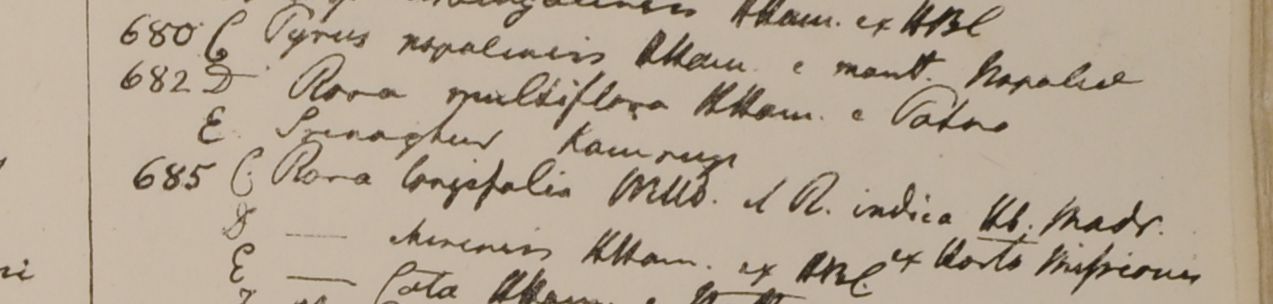 HHam. ex HBC
680 C Pyrus nepalensis HHam. e mont. Nepaliæ
682 D Rosa multiflora HHam. e Patna
E Srinaghur Kamrup
685 C. Rosa longifolia Willd. et R. indica Hb. Madr.
D — chinensis HHam. ex HBC ex Horto Missionis
E — HHam.